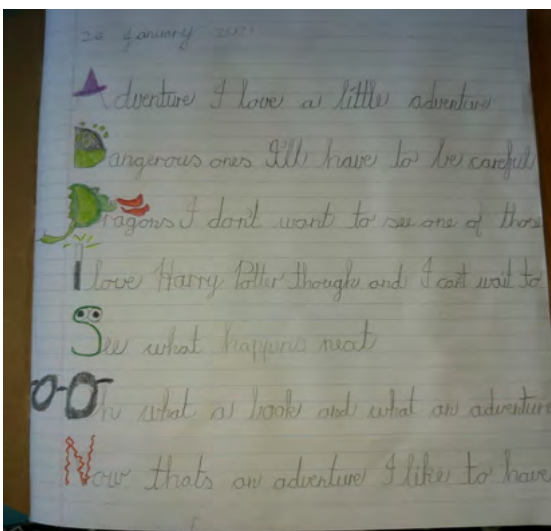 20 January 2021
Adventure I love a little adventure
Dangerous ones I'll have to be careful
Dragons I don't want to see one of those
I love Harry Potter though and I can't wait to
See what happens next
Oh what a book and what an adventure
Now thats an adventure I like to have